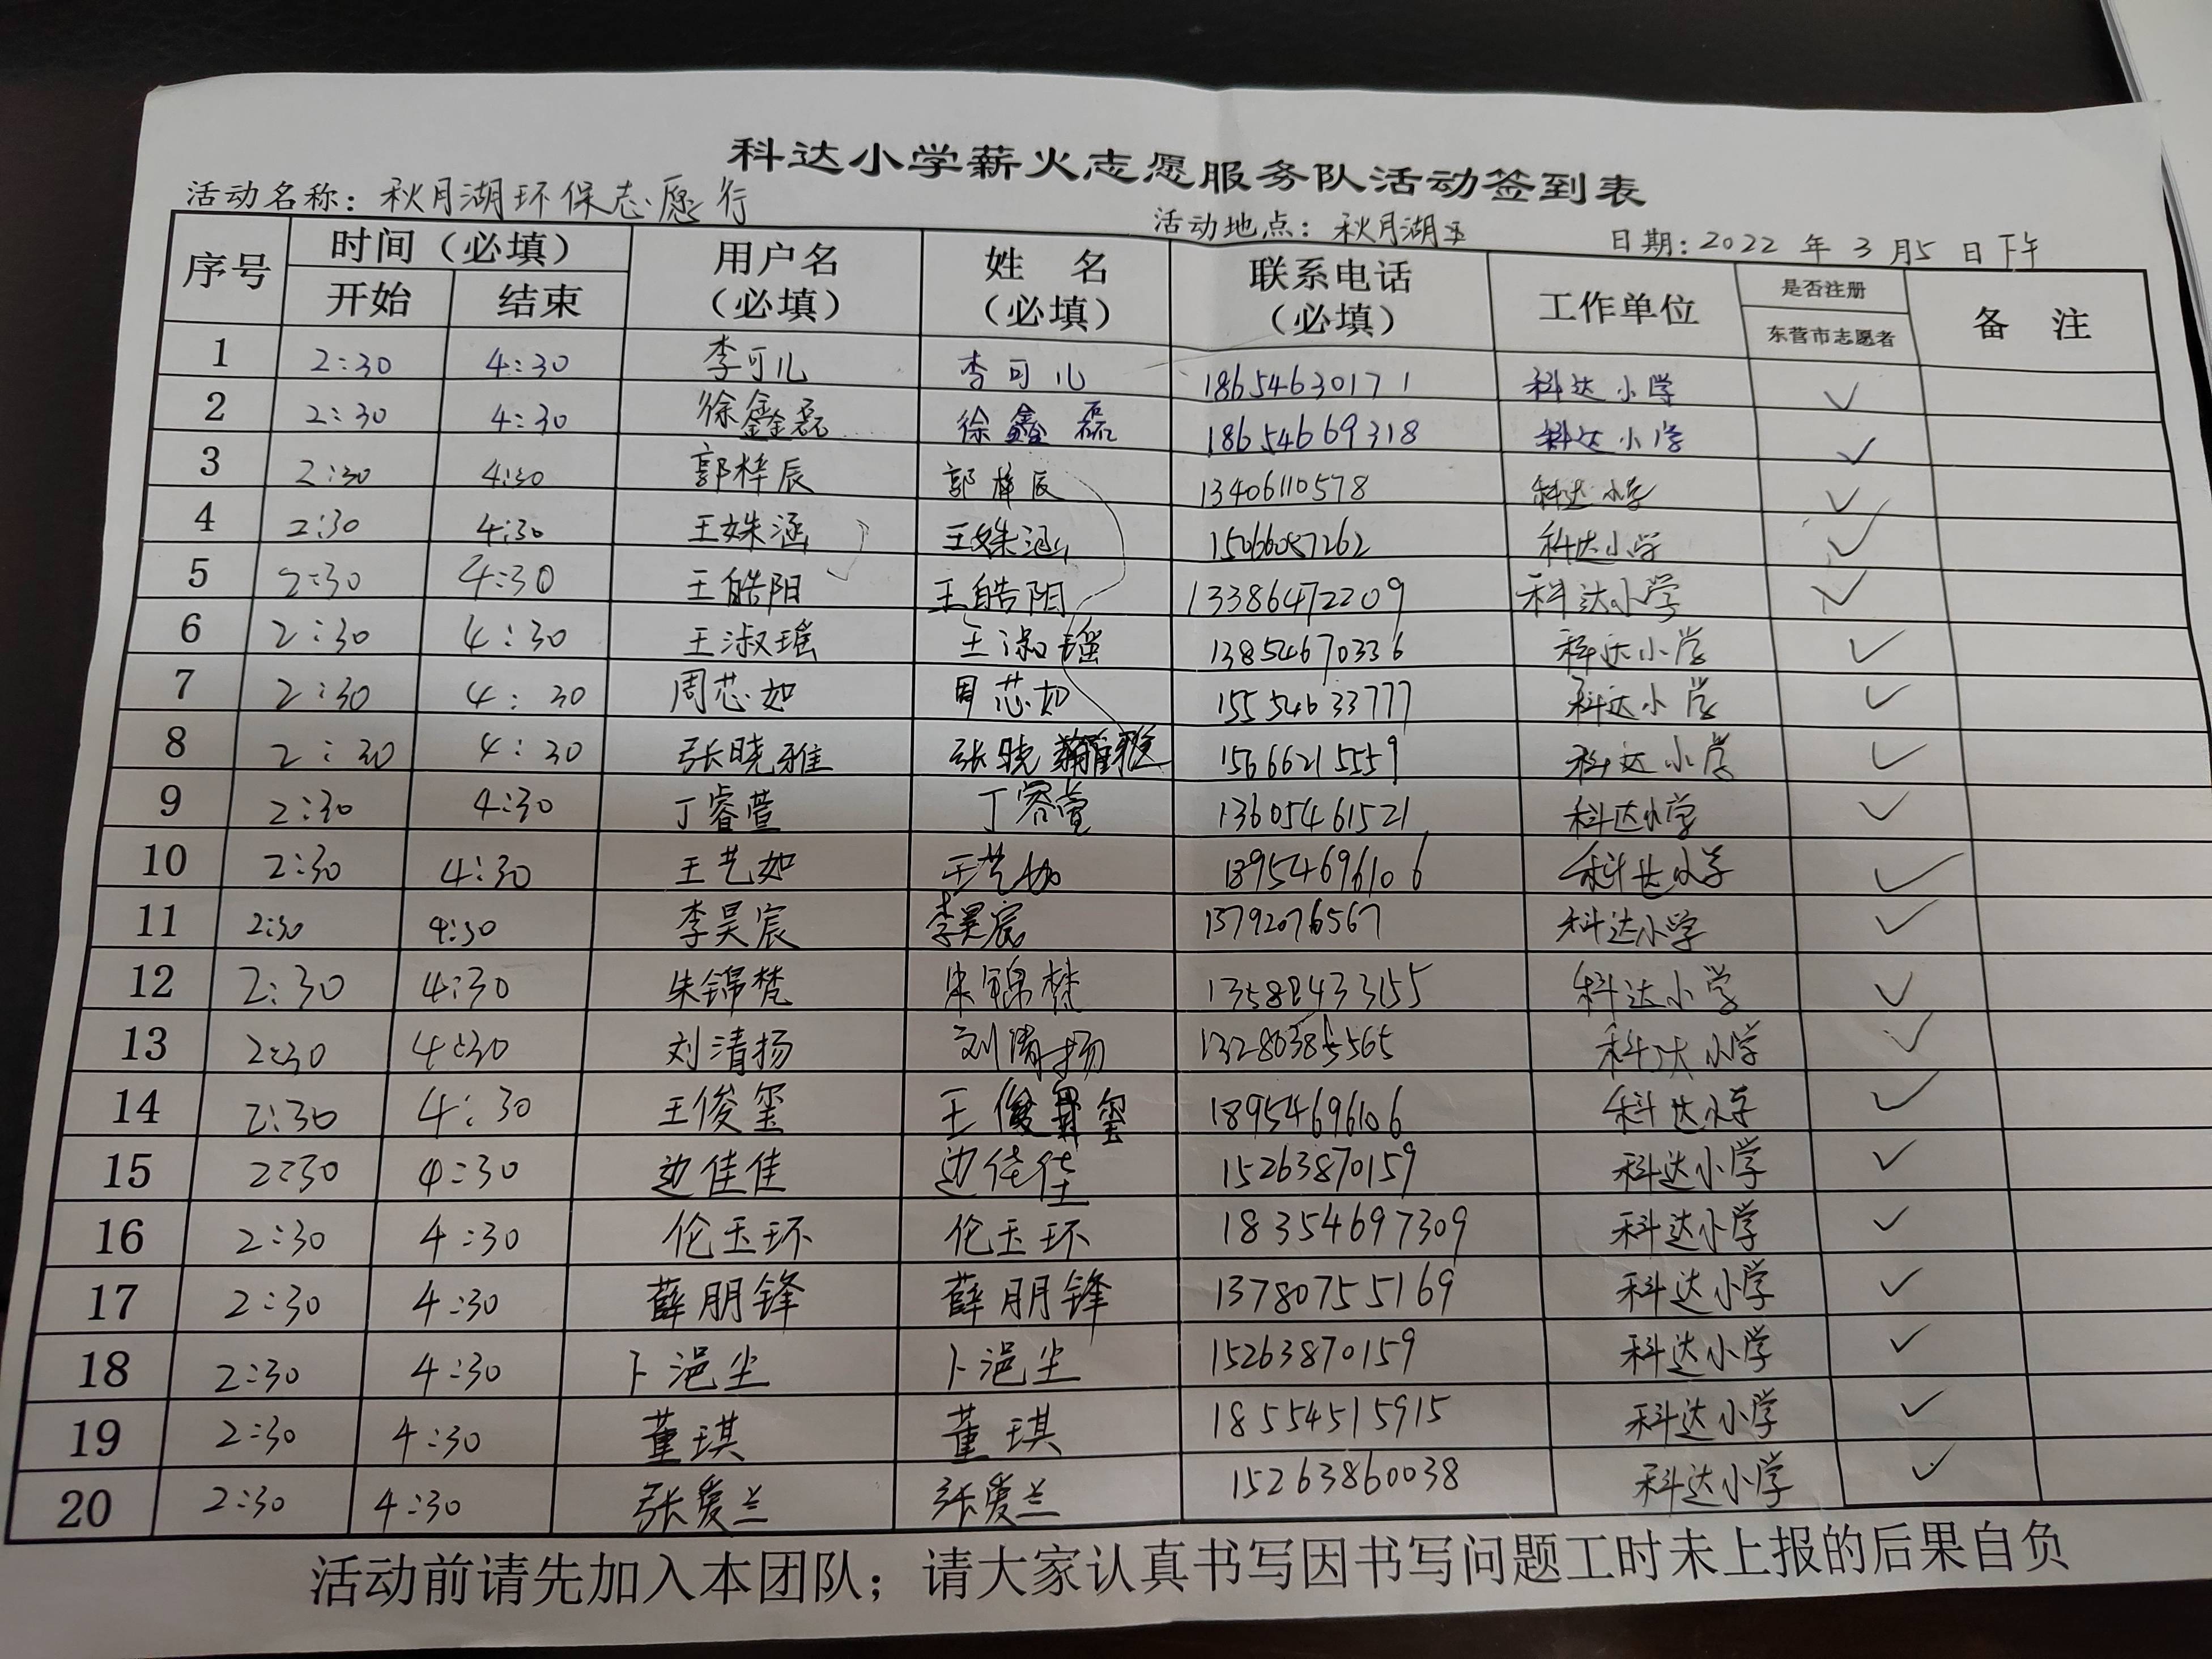 科达小学薪火志愿服务队活动签到表
活动名称：秋月湖环保志愿行 活动地点：秋月湖 日期：2022年3月5日下午
序号 时间（必填） 用户名（必填） 姓 名（必填） 联系电话（必填） 工作单位 是否注册 备 注
开始 结束 东营市志愿者
1 2:30 4:30 李可儿 李可儿 18654630171 科达小学 ✓
2 2:30 4:30 徐鑫磊 徐鑫磊 18654669318 科达小学 ✓
3 2:30 4:30 郭梓辰 郭梓辰 13406110578 科达小学 ✓
4 2:30 4:30 王姝涵 王姝涵 15066087262 科达小学 ✓
5 2:30 4:30 王皓阳 王皓阳 13386472209 科达小学 ✓
6 2:30 4:30 王淑瑶 王淑瑶 13854670336 科达小学 ✓
7 2:30 4:30 周芯如 周芯如 15554633777 科达小学 ✓
8 2:30 4:30 张晓雅 张晓雅 15666215559 科达小学 ✓
9 2:30 4:30 丁睿萱 丁睿萱 13605461521 科达小学 ✓
10 2:30 4:30 王艺如 王艺如 18954696106 科达小学 ✓
11 2:30 4:30 李昊宸 李昊宸 13792076567 科达小学 ✓
12 2:30 4:30 朱锦梵 朱锦梵 科达小学 ✓
13 2:30 4:30 刘清扬 刘清扬 科达小学 ✓
14 2:30 4:30 王俊玺 王俊玺 18954696106 科达小学 ✓
15 2:30 4:30 边佳佳 边佳佳 15263870159 科达小学 ✓
16 2:30 4:30 伦玉环 伦玉环 18354697309 科达小学 ✓
17 2:30 4:30 薛朋锋 薛朋锋 13780755169 科达小学 ✓
18 2:30 4:30 卜浥尘 卜浥尘 15263870159 科达小学 ✓
19 2:30 4:30 董琪 董琪 18554515915 科达小学 ✓
20 2:30 4:30 张爱兰 张爱兰 15263860038 科达小学 ✓
活动前请先加入本团队；请大家认真书写因书写问题工时未上报的后果自负